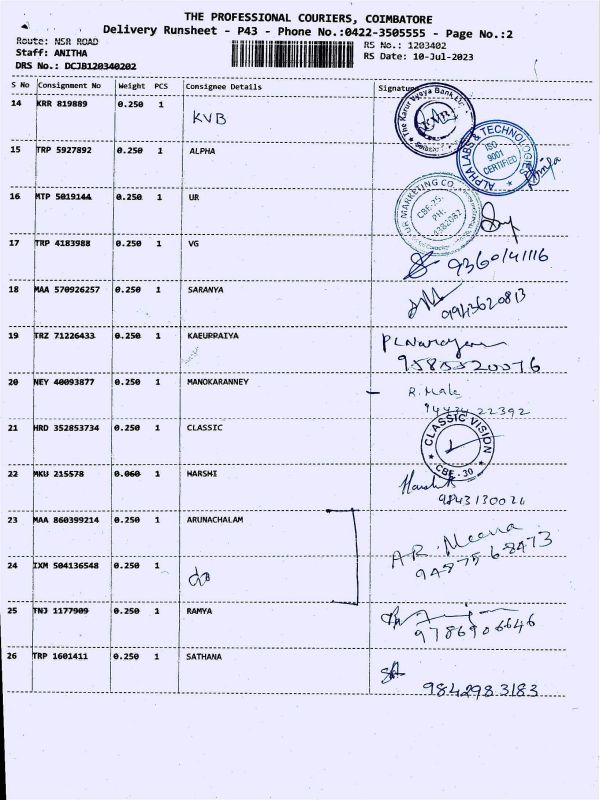 THE PROFESSIONAL COURIERS, COIMBATORE
Delivery Runsheet - P43 - Phone No.:0422-3505555 - Page No.:2
Route: NSR ROAD
RS No.: 1203402
Staff: ANITHA
RS Date: 10-Jul-2023
DRS No.: DCJB120340202
S No Consignment No Weight PCS Consignee Details Signature
14 KRR 819889 0.250 1 KVB
The Karur Vysya Bank Ltd
15 TRP 5927892 0.250 1 ALPHA
ALPHA LABS & TECHNOLOGIES
ISO
9001
CERTIFIED
16 MTP 5019144 0.250 1 UR
UR MARKETING CO.
CBE-25.
PH:
4382082
17 TRP 4183988 0.250 1 VG
9360141116
18 MAA 570926257 0.250 1 SARANYA
9943620813
19 TRZ 71226433 0.250 1 KAEURPAIYA
PLNarayan
9585520076
20 NEY 40093877 0.250 1 MANOKARANNEY
R. Mala
94434 22392
21 HRD 352853734 0.250 1 CLASSIC
CLASSIC VISION
CBE - 30
22 MKU 215578 0.060 1 HARSHI
Harshit
9843130026
23 MAA 860399214 0.250 1 ARUNACHALAM
AR. Meena
94875 68473
24 IXM 504136548 0.250 1
25 TNJ 1177909 0.250 1 RAMYA
9786906646
26 TRP 1601411 0.250 1 SATHANA
9842983183